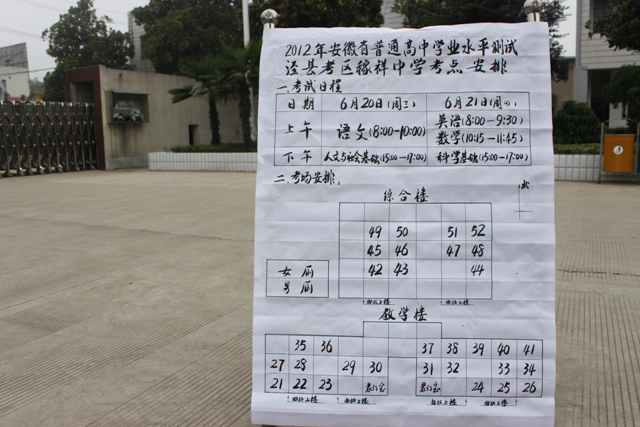 2012年安徽省普通高中学业水平测试
泾县考区稼祥中学考点 安排
一.考试日程
日期 6月20日(周三) 6月21日(周四)
上午 语文(8:00-10:00) 英语(8:00-9:30)
数学(10:15-11:45)
下午 人文与社会基础(15:00-17:00) 科学基础(15:00-17:00)
二.考场安排。
北
综合楼
49 50 51 52
45 46 47 48
42 43 44
女厕
男厕
教学楼
35 36 37 38 39 40 41
27 28 29 30 31 32 33 34
21 22 23 24 25 26